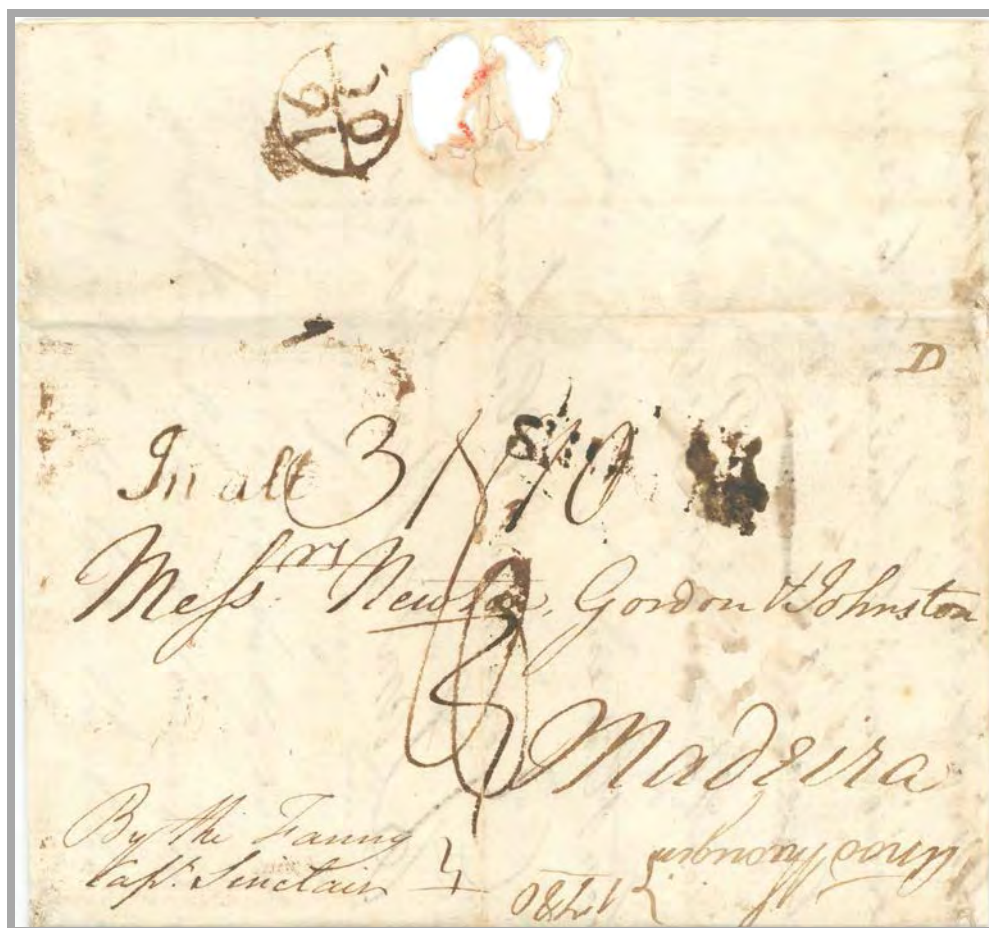 16
OC
D
In all 3/10
Messrs. Newton, Gordon & Johnston
Madeira
By the Fanny
Capt. Sinclair
1780